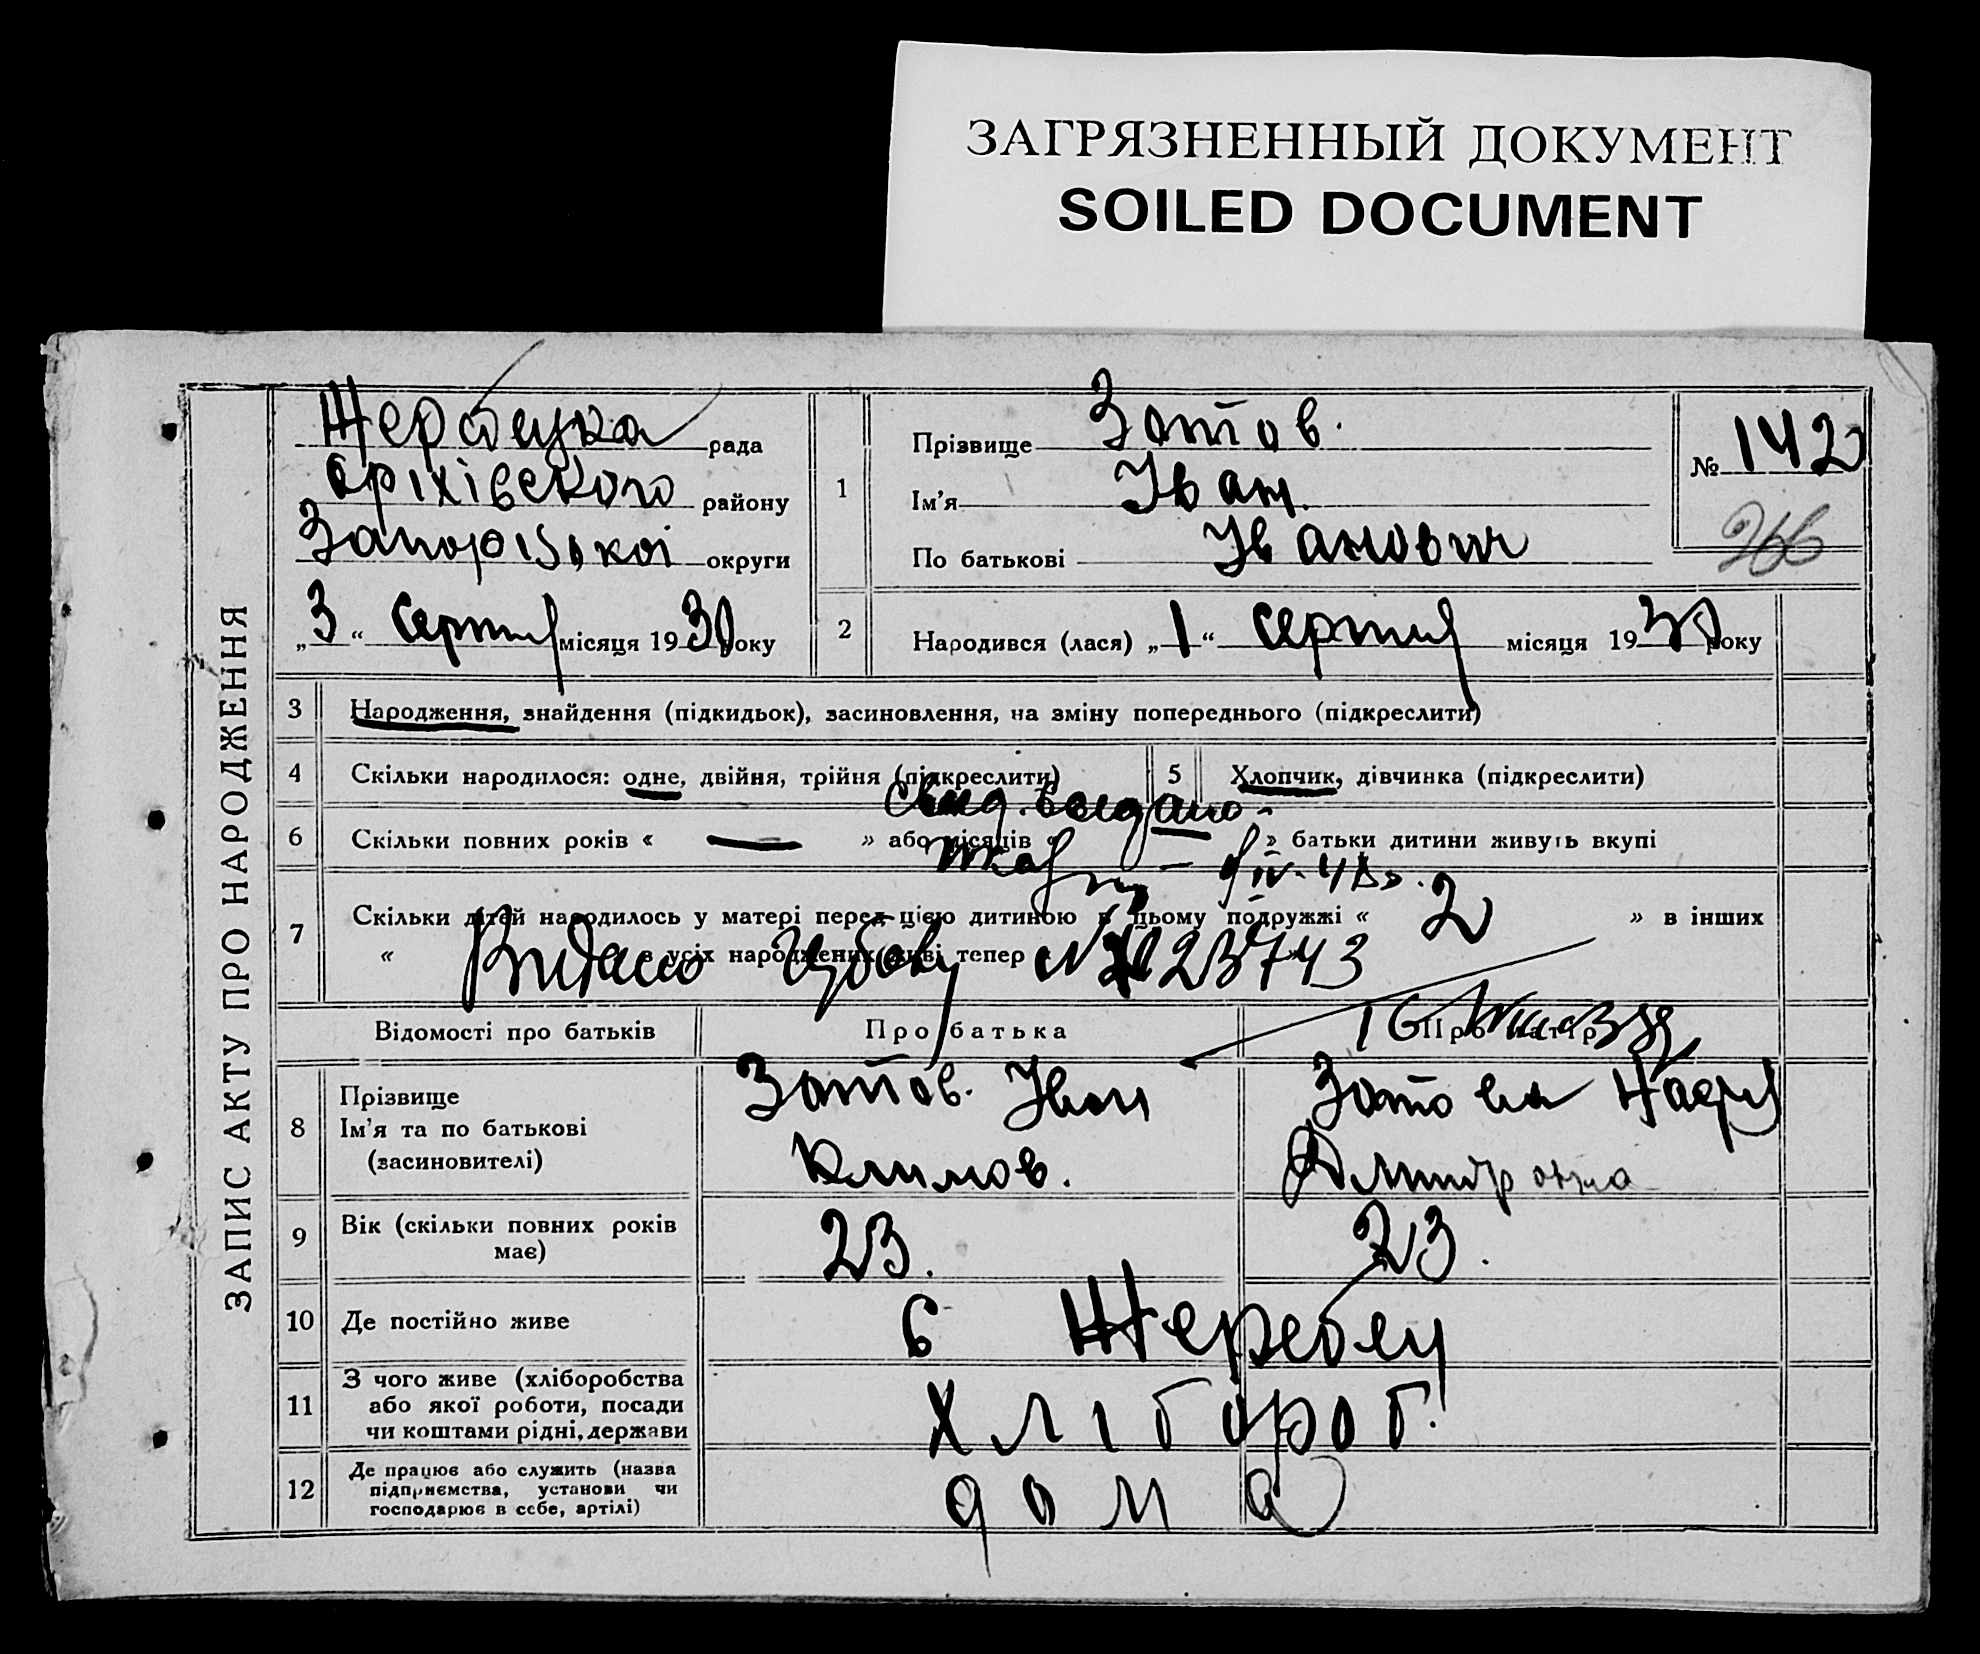 ЗАГРЯЗНЕННЫЙ ДОКУМЕНТ
SOILED DOCUMENT
ЗАПИС АКТУ ПРО НАРОДЖЕННЯ
рада
Оріхівского району
округи
„3“ серпня місяця 1930 року
1
Прізвище Зотов.
Ім’я Іван.
По батькові Іванович
№ 142
266
2
Народився (лася) „1“ серпня місяця 1930 року
3 Народження, знайдення (підкидьок), засиновлення, на зміну попереднього (підкреслити)
4 Скільки народилося: одне, двійня, трійня (підкреслити) 5 Хлопчик, дівчинка (підкреслити)
6 Скільки повних років « — » або місяців « » батьки дитини живуть вкупі
7 Скільки дітей народилось у матері перед цією дитиною в цьому подружжі « 2 » в інших
« з усіх народжених живі тепер
Відомості про батьків Про батька Про матір
8 Прізвище
Ім’я та по батькові
(засиновителі)
Зотов. Іван
Климов.
Зотова
9 Вік (скільки повних років має) 23. 23.
10 Де постійно живе
11 З чого живе (хліборобства
або якої роботи, посади
чи коштами рідні, держави
Хлібороб.
12 Де працює або служить (назва
підприємства, установи чи
господарює в себе, артілі)
дома